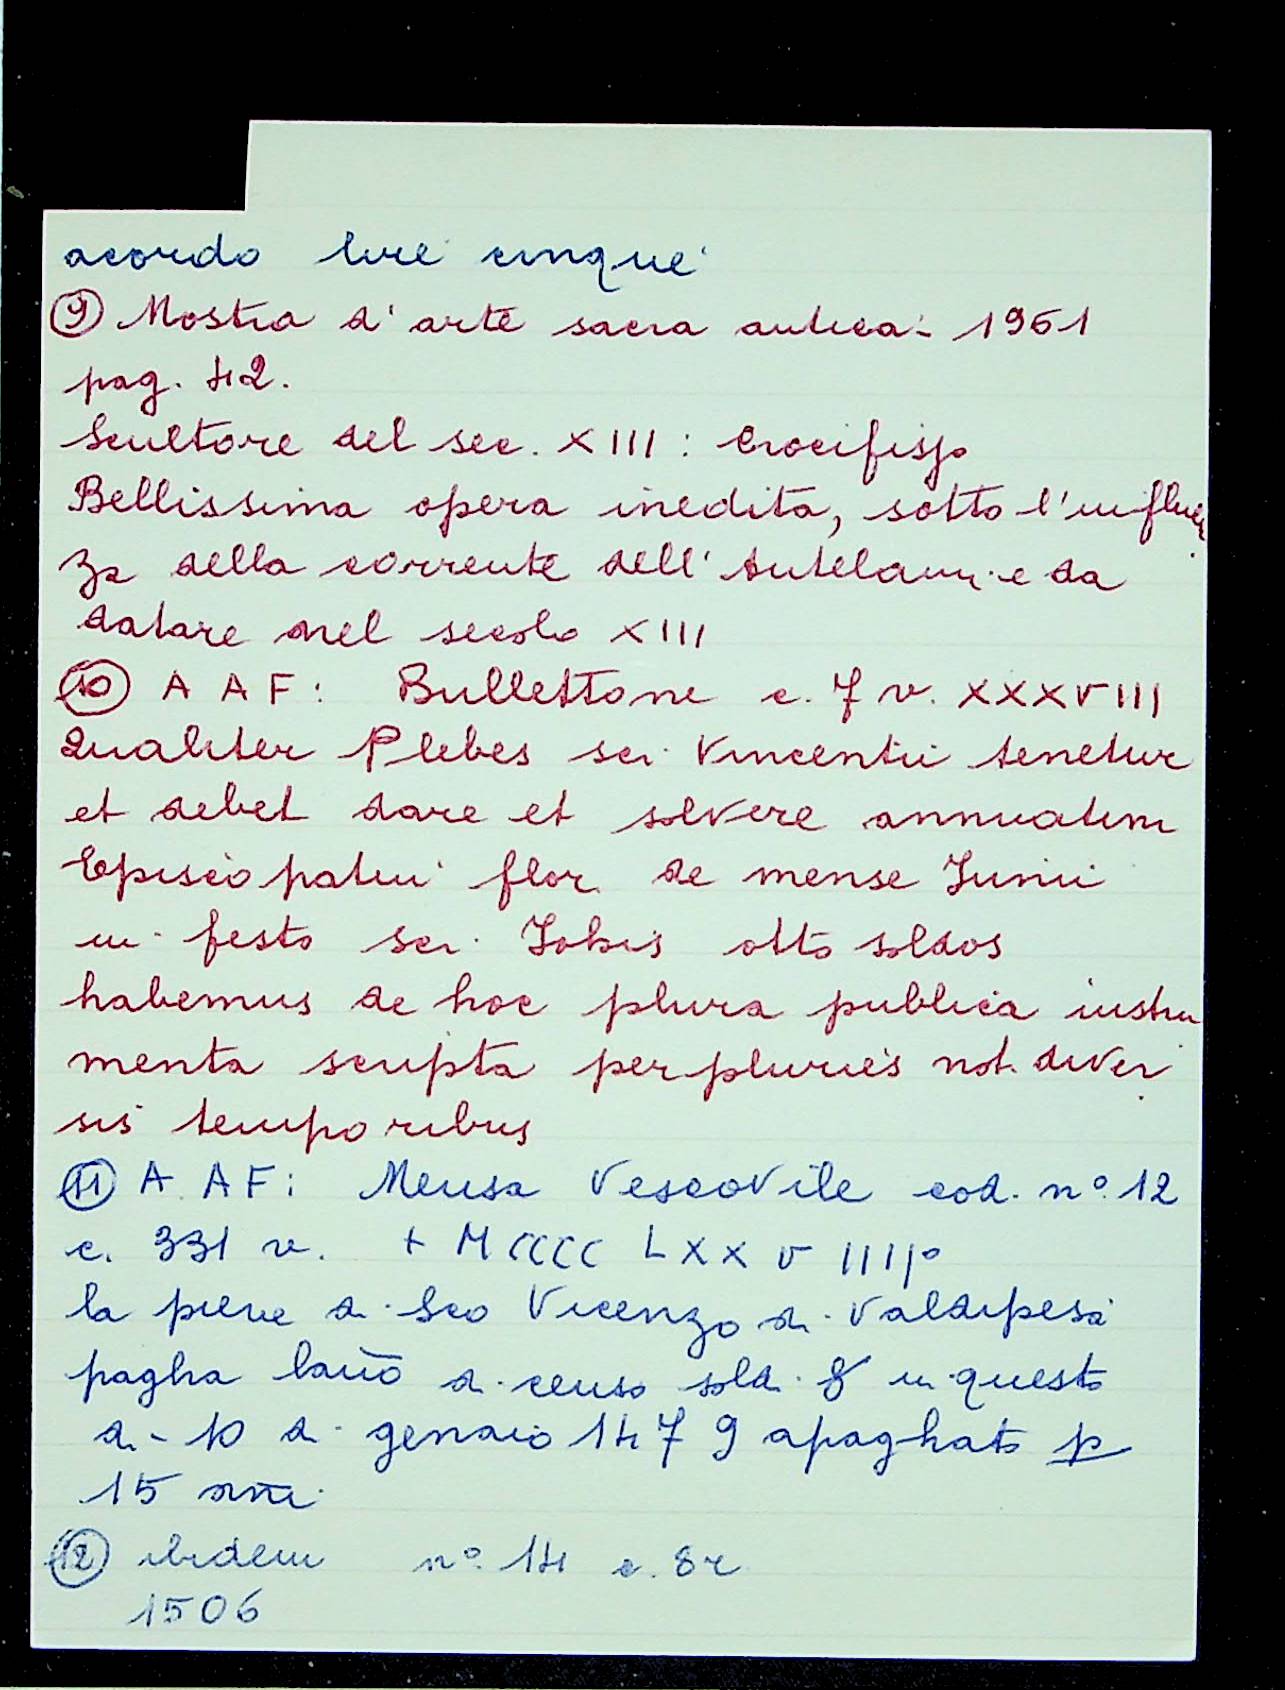 acordo lire cinque
⑨ Mostra d'arte sacra antica - 1961
pag. 42.
Scultore del sec. XIII : Crocifisso
Bellissima opera inedita, sotto l'influen
za della corrente dell'Antelami e da
datare nel secolo XIII
⑩ A A F : Bullettone c. 7 v. XXXVIII
Qualiter Plebes sci Vincentii tenetur
et debet dare et solvere annuatim
Episcopatui flor. de mense Junii
in festo sci Johis otto soldos
habemus de hoc plura publica instru
menta scripta per plures not. diver
sis temporibus
⑪ A A F : Mensa Vescovile cod. n° 12
c. 331 v. + MCCCC LXX V IIII°
la pieve di Sco Vicenzo di Valdipesa
pagha lano di censo sold. 8 in questo
di - 10 di gennaio 1479 a paghato p
15 ani
⑫ ibidem n° 14 c. 8r
1506